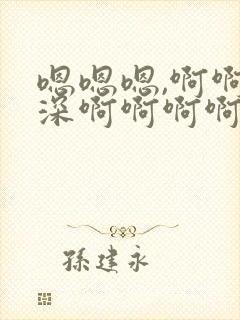 嗯嗯嗯,啊啊
深啊啊啊啊
孫建永